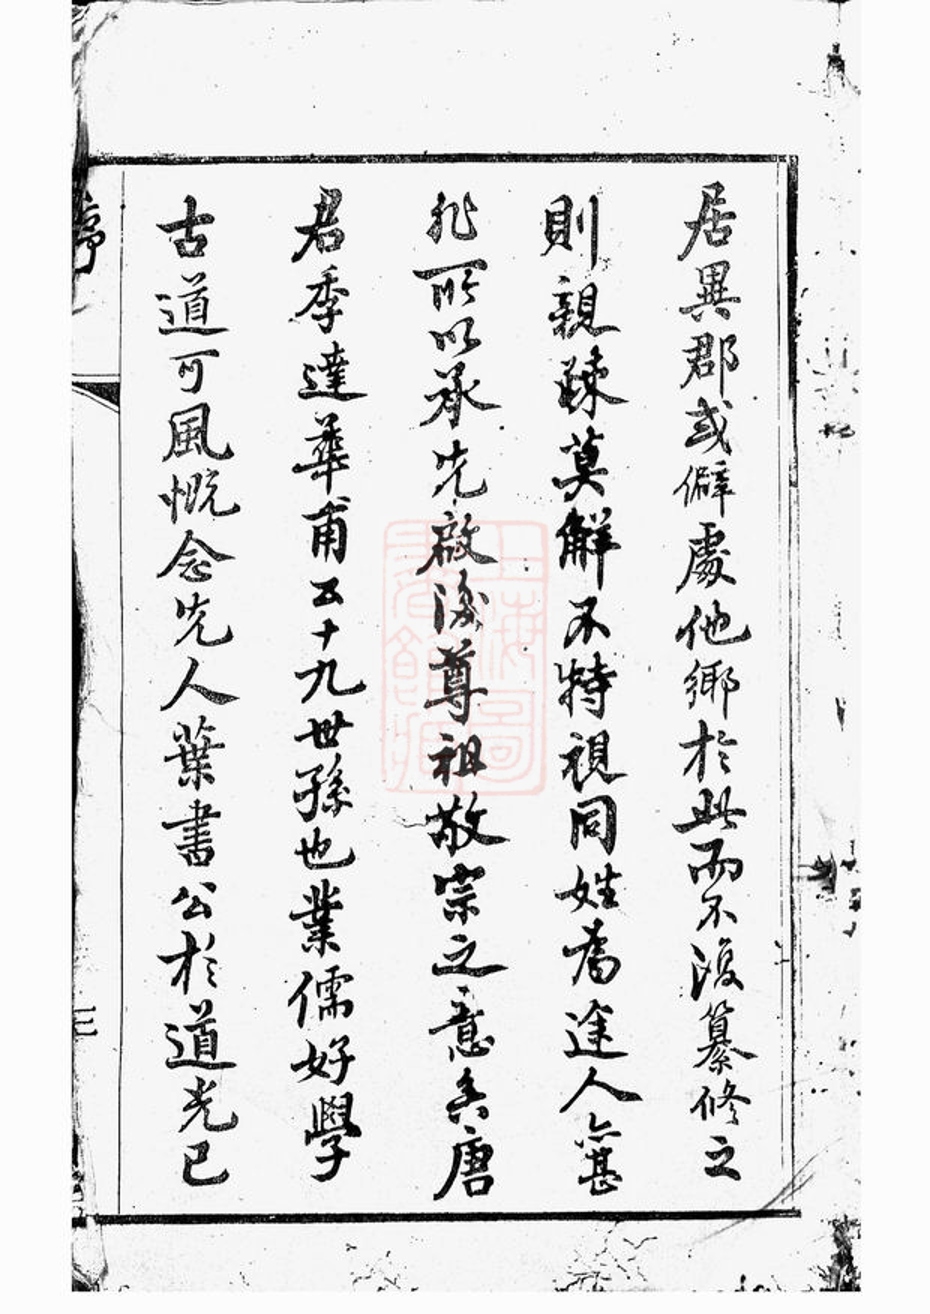 居異郡或僻處他鄉於此而不復纂修之
則親疎莫解不特視同姓為途人亦甚
非所以承先啟後尊祖敬宗之意矣唐
君季達華甫五十九世孫也業儒好學
古道可風慨念先人葉書公於道光已
序
三
上海圖
書館藏